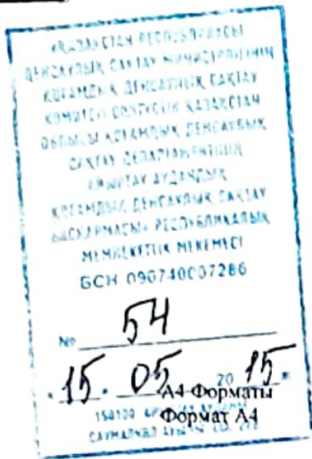 ҚАЗАҚСТАН РЕСПУБЛИКАСЫ
ДЕНСАУЛЫҚ САҚТАУ МИНИСТРЛІГІНІҢ
ҚОҒАМДЫҚ ДЕНСАУЛЫҚ САҚТАУ
КОМИТЕТІ СОЛТҮСТІК ҚАЗАҚСТАН
ОБЛЫСЫ ҚОҒАМДЫҚ ДЕНСАУЛЫҚ
САҚТАУ ДЕПАРТАМЕНТІНІҢ
АЙЫРТАУ АУДАНДЫҚ
ҚОҒАМДЫҚ ДЕНСАУЛЫҚ САҚТАУ
БАСҚАРМАСЫ РЕСПУБЛИКАЛЫҚ
МЕМЛЕКЕТТІК МЕКЕМЕСІ
БСН 090740007286
№ 54
15. 05 20 15
А4 Форматы
Формат А4
150100
САУМАЛКӨЛ АУЫЛЫ